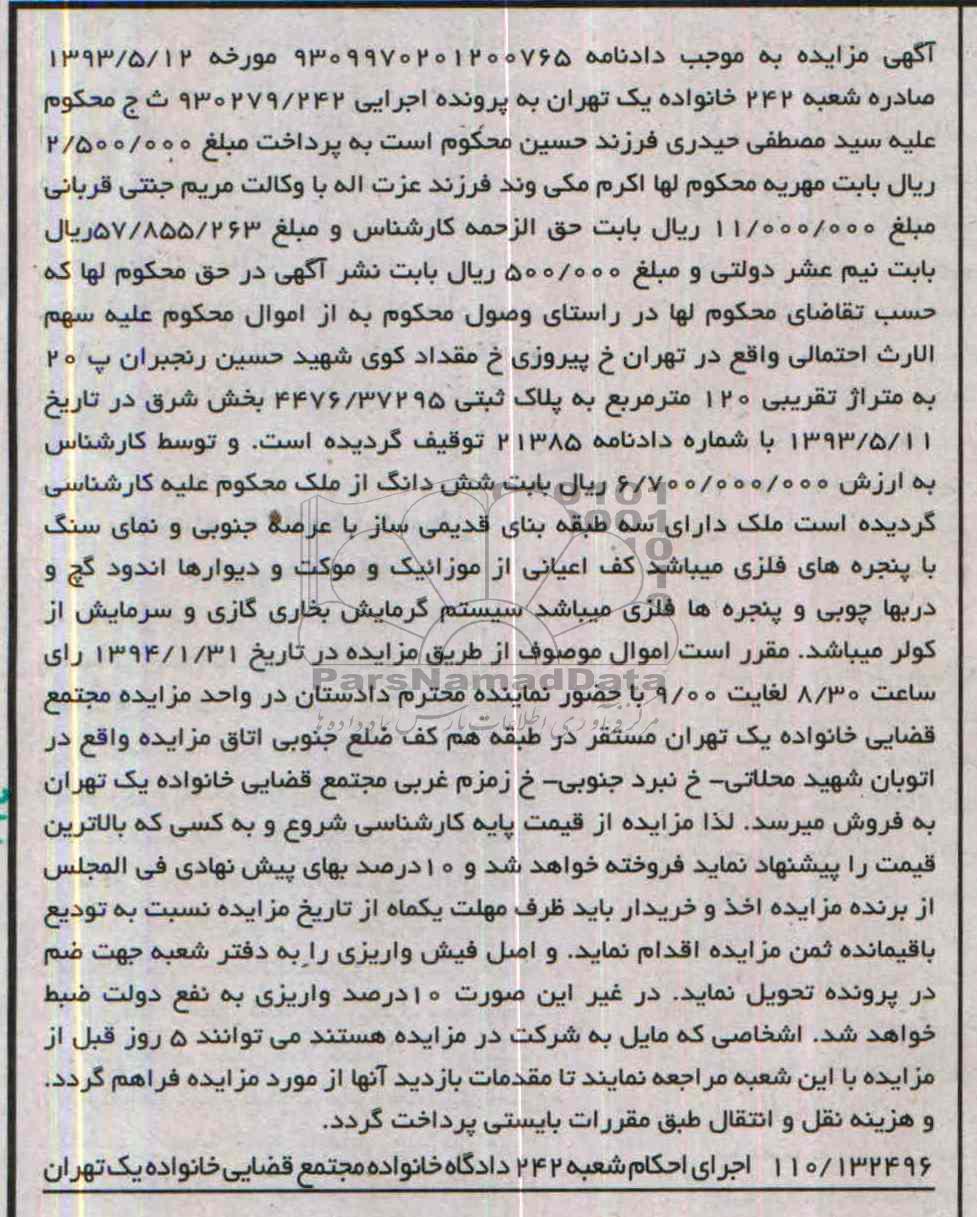 آگهی مزایده به موجب دادنامه ۹۳۰۹۹۷۰۲۰۱۲۰۰۷۶۵ مورخه ۱۳۹۳/۵/۱۲
صادره شعبه ۲۴۲ خانواده یک تهران به پرونده اجرایی ۹۳۰۲۷۹/۲۴۲ ث ج محکوم
علیه سید مصطفی حیدری فرزند حسین محکوم است به پرداخت مبلغ ۲/۵۰۰/۰۰۰
ریال بابت مهریه محکوم لها اکرم مکی وند فرزند عزت اله با وکالت مریم جنتی قربانی
مبلغ ۱۱/۰۰۰/۰۰۰ ریال بابت حق الزحمه کارشناس و مبلغ ۵۷/۸۵۵/۲۶۳ریال
بابت نیم عشر دولتی و مبلغ ۵۰۰/۰۰۰ ریال بابت نشر آگهی در حق محکوم لها که
حسب تقاضای محکوم لها در راستای وصول محکوم به از اموال محکوم علیه سهم
الارث احتمالی واقع در تهران خ پیروزی خ مقداد کوی شهید حسین رنجبران پ ۲۰
به متراژ تقریبی ۱۲۰ مترمربع به پلاک ثبتی ۴۴۷۶/۳۷۲۹۵ بخش شرق در تاریخ
۱۳۹۳/۵/۱۱ با شماره دادنامه ۲۱۳۸۵ توقیف گردیده است. و توسط کارشناس
به ارزش ۶/۷۰۰/۰۰۰/۰۰۰ ریال بابت شش دانگ از ملک محکوم علیه کارشناسی
گردیده است ملک دارای سه طبقه بنای قدیمی ساز با عرصه جنوبی و نمای سنگ
با پنجره های فلزی میباشد کف اعیانی از موزائیک و موکت و دیوارها اندود گچ و
دربها چوبی و پنجره ها فلزی میباشد سیستم گرمایش بخاری گازی و سرمایش از
کولر میباشد. مقرر است اموال موصوف از طریق مزایده در تاریخ ۱۳۹۴/۱/۳۱ رای
ParsNamadData
ساعت ۸/۳۰ لغایت ۹/۰۰ با حضور نماینده محترم دادستان در واحد مزایده مجتمع
مرکز فناوری اطلاعات پارس نماد داده ها
قضایی خانواده یک تهران مستقر در طبقه هم کف ضلع جنوبی اتاق مزایده واقع در
اتوبان شهید محلاتی– خ نبرد جنوبی– خ زمزم غربی مجتمع قضایی خانواده یک تهران
به فروش میرسد. لذا مزایده از قیمت پایه کارشناسی شروع و به کسی که بالاترین
قیمت را پیشنهاد نماید فروخته خواهد شد و ۱۰درصد بهای پیش نهادی فی المجلس
از برنده مزایده اخذ و خریدار باید ظرف مهلت یکماه از تاریخ مزایده نسبت به تودیع
باقیمانده ثمن مزایده اقدام نماید. و اصل فیش واریزی را به دفتر شعبه جهت ضم
در پرونده تحویل نماید. در غیر این صورت ۱۰درصد واریزی به نفع دولت ضبط
خواهد شد. اشخاصی که مایل به شرکت در مزایده هستند می توانند ۵ روز قبل از
مزایده با این شعبه مراجعه نمایند تا مقدمات بازدید آنها از مورد مزایده فراهم گردد.
و هزینه نقل و انتقال طبق مقررات بایستی پرداخت گردد.
۱۱۰/۱۳۲۴۹۶ اجرای احکام شعبه ۲۴۲ دادگاه خانواده مجتمع قضایی خانواده یک تهران